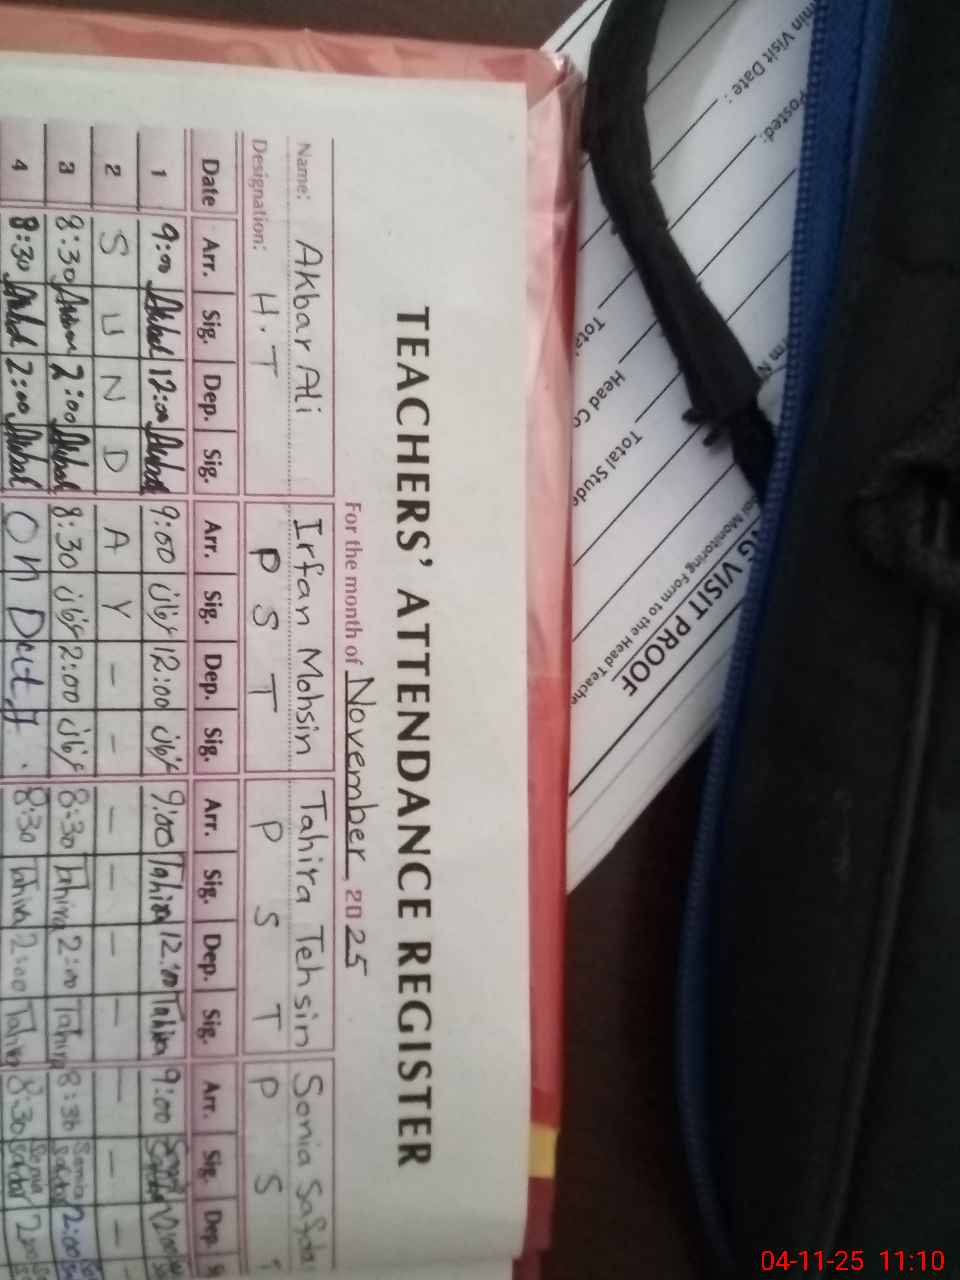 TEACHERS' ATTENDANCE REGISTER
For the month of November, 2025
Name: Akbar Ali Irfan Mohsin Tahira Tehsin Sonia Safda
Designation: H.T P S T P S T P S
Date Arr. Sig. Dep. Sig. Arr. Sig. Dep. Sig. Arr. Sig. Dep. Sig. Arr. Sig. Dep. S
1 9:00 Akbar 12:00 Akbar 9:00 عرفان 12:00 عرفان 9:00 Tahira 12:00 Tahira 9:00 Sonia Safdar 12:00
2 S U N D A Y - - - - - - - - -
3 8:30 Akbar 2:00 Akbar 8:30 عرفان 2:00 عرفان 8:30 Tahira 2:00 Tahira 8:30 Sonia Safdar 2:00
4 8:30 Akbar 2:00 Akbar On Duty. 8:30 Tahira 2:00 Tahira 8:30 Sonia Safdar 2:00
VISIT PROOF
Monitoring Form to the Head Teache
Total Stude
Head Co
Total
Posted:
min Visit Date :
04-11-25 11:10